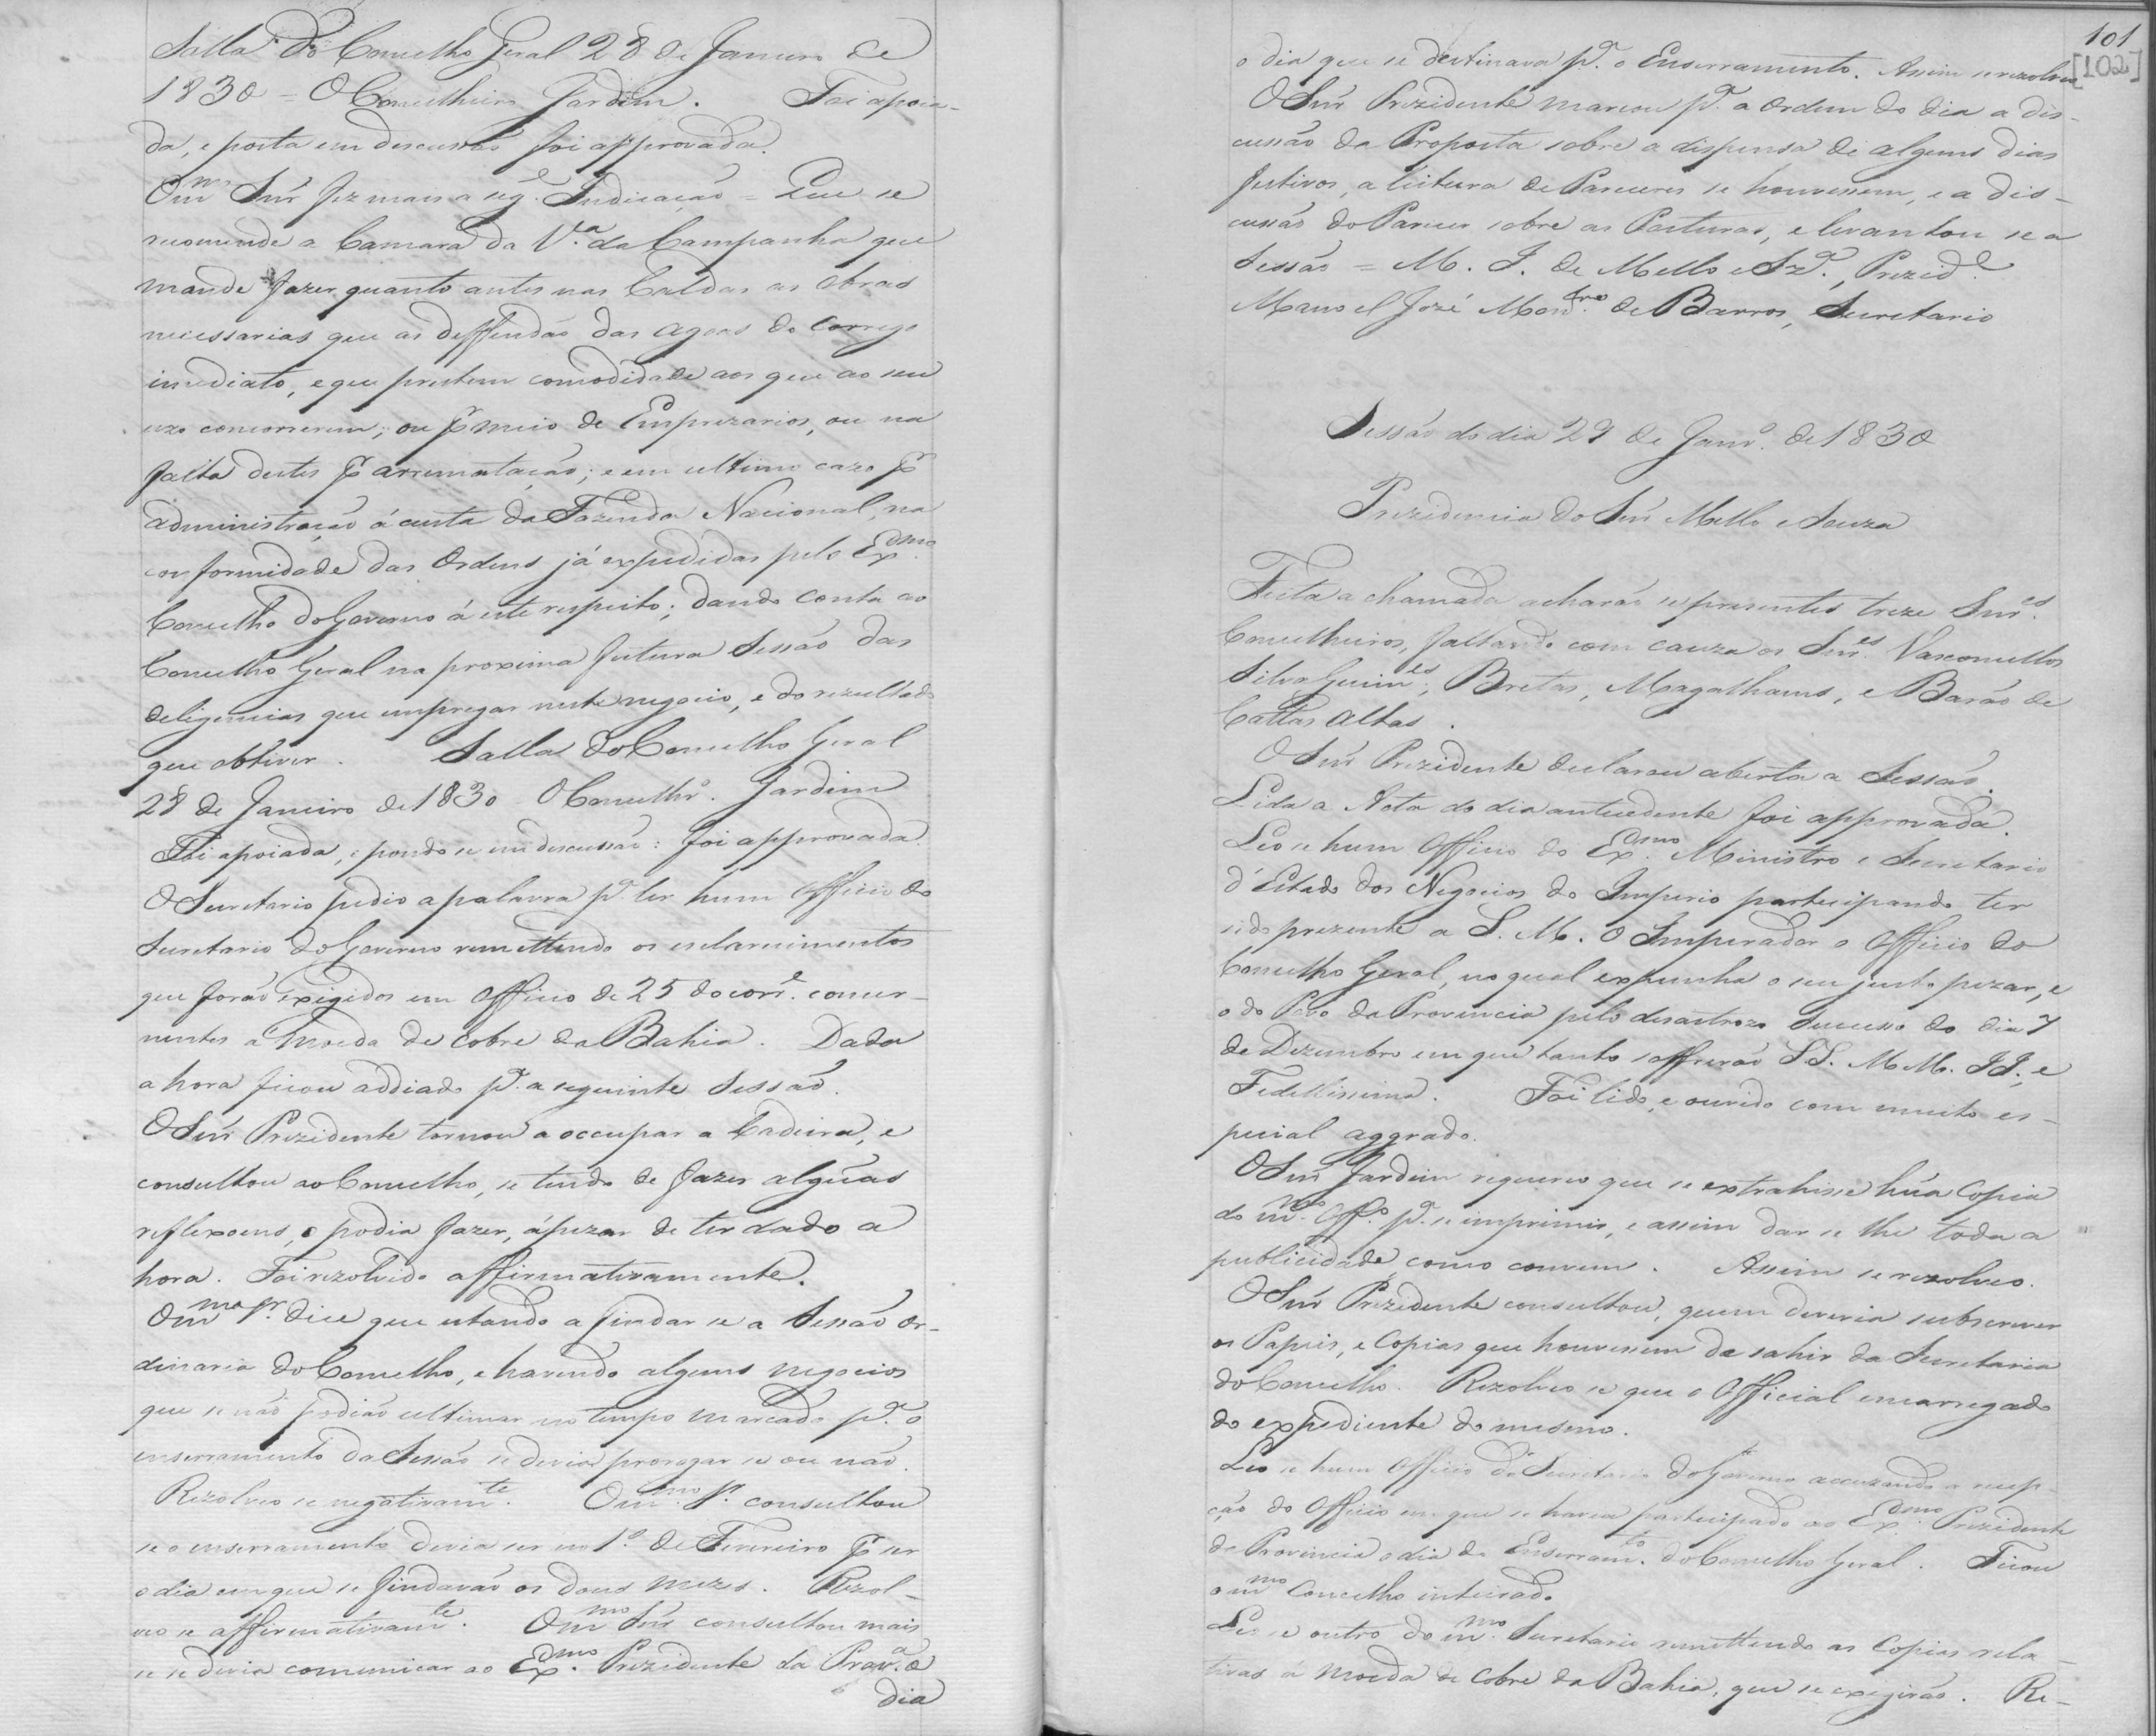 Salla do Concelho Geral 28 de Janeiro de
1830 = O Concelheiro Jardim. Foi apoia-
da, e posta em discussão foi approvada.
O mᵐᵒ Snr̃ fez mais a segᵉ. Indicação = Que se
recomende a Camara da Vᵃ. da Campanha que
mande fazer quanto antes nas Caldas as obras
necessarias que as deffendão das agoas do Corrego
imediato, e que prestem comodidade aos que ao seu
uzo concorrerem; ou p̃ meio de Emprezarios, ou na
falta destes p̃ arrematação; e em ultimo cazo p̃
administração á custa da Fazenda Nacional, na
conformidade das Ordens já expedidas pelo Exᵐᵒ.
Concelho do Governo á este respeito; dando conta ao
Concelho Geral na proxima futura Sessão das
deligencias que empregar neste negocio, e do rezultado
que obtiver. Salla do Concelho Geral
28 de Janeiro de 1830 O Concelhrº. Jardim
Foi apoiada, e pondo se em discussão: foi approvada.
O Secretario pedio a palavra pᵃ. ler hum Officio do
Secretario do Governo remettendo os esclarecimentos
que forão exigidos em Officio de 25 do corrᵉ. concer-
nentes a moeda de Cobre da Bahia. Dada
a hora ficou addiado pᵃ. a seguinte Sessão.
O Snr̃ Prezidente tornou a occupar a Cadeira, e
consultou ao Concelho, se tendo de fazer algũas
reflexoens, o podia fazer, ápezar de ter dado a
hora. Foi rezolvido affirmativamente.
O mᵐᵒ Sʳ. dice que estando a findar se a Sessão Or-
dinaria do Concelho, e havendo alguns negocios
que se não podião ultimar no tempo marcado pᵃ. o
enserramento da Sessão se devia prorogar se ou não.
Rezolveo se negativamᵗᵉ. O mᵐᵒ. Sʳ. consultou
se o enserramento devia ser no 1º. de Fevereiro p̃ ser
o dia em que se findavão os dous mezes. Rezol-
veo se affirmativamᵗᵉ. O mᵐᵒ Snr̃ consultou mais
se se devia comunicar ao Exᵐᵒ. Prezidente da Provᵃ. o
dia
101
[102]
o dia que se destinava pᵃ. o Enserramento. Assim se rezolveo
O Snr̃ Prezidente marcou pᵃ. a Ordem do dia a dis-
cussão da Proposta sobre a dispensa de alguns dias
festivos, a leitura de Pareceres se houvessem, e a dis-
cussão do Parecer sobre as Posturas, e levantou se a
Sessão = M. I. de Mello e Szᵃ., Prezidᵉ
Manoel José Montrᵒ. de Barros, Secretario
Sessão do dia 29 de Janrº. de 1830
Prezidencia do Snr̃ Mello e Souza
Feita a chamada acharão se presentes treze Snrᵉˢ.
Concelheiros, faltando com cauza os Snrᵉˢ. Vasconcellos
Silva Guimᵉˢ, Bretas, Magalhaens, e Barão de
Cattas Altas.
O Snr̃ Prezidente declarou aberta a Sessão.
Lida a Acta do dia antecedente foi approvada.
Leo se hum Officio do Exᵐᵒ. Ministro e Secretario
d'Estado dos Negocios do Imperio participando ter
sido prezente a S. M. O Imperador o Officio do
Concelho Geral, no qual expunha o seu justo pezar, e
o do Povo da Provincia pelo desastrozo Sucesso do dia 7
de Dezembro em que tanto soffrerão SS. MM. II., e
Fidellissima. Foi lido, e ouvido com muito es-
pecial aggrado.
O Snr̃ Jardim requereo que se extrahisse hũa Copia
do mᵐᵒ. Offº. pᵃ. se imprimir, e assim dar se lhe toda a
publicidade como convem. Assim se rezolveo.
O Snr̃ Prezidente consultou, quem deveria subscrever
os Papeis, e Copias que houvessem de sahir da Secretaria
do Concelho. Rezolveo se que o Official encarregado
do expediente do mesmo.
Leo se hum Officio do Secretario do Governo accuzando a recep-
ção do Officio em que se havia participado ao Exᵐᵒ. Prezidente
da Provincia o dia do Enserramᵗᵒ. do Concelho Geral. Ficou
o mᵐᵒ Concelho inteirado.
Leo se outro do mᵐᵒ. Secretario remettendo as Copias rela-
tivas á moeda de Cobre da Bahia, que se exigirão. Re-